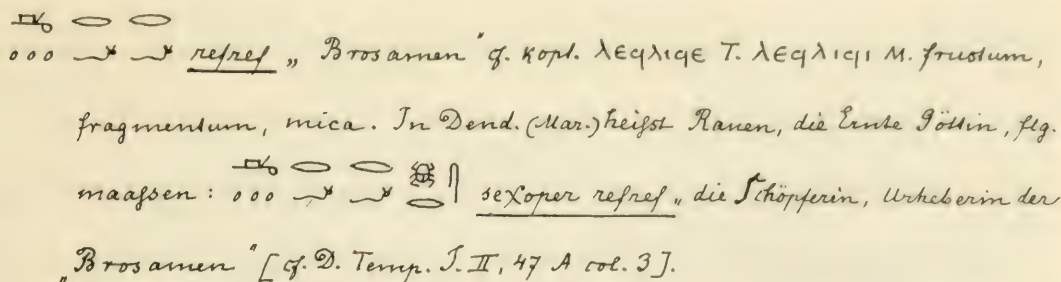 refref „ Brosamen " cf. kopt. ⲗⲉϥⲗⲓϥⲉ T. ⲗⲉϥⲗⲓϥⲓ M. frustum,
fragmentum, mica. In Dend. (Mar.) heißt Ranen, die Ernte Göttin, flg.
maaßen : seχoper refref „ die Schöpferin, Urheberin der
„Brosamen " [cf. D. Temp. T. II, 47 A col. 3].